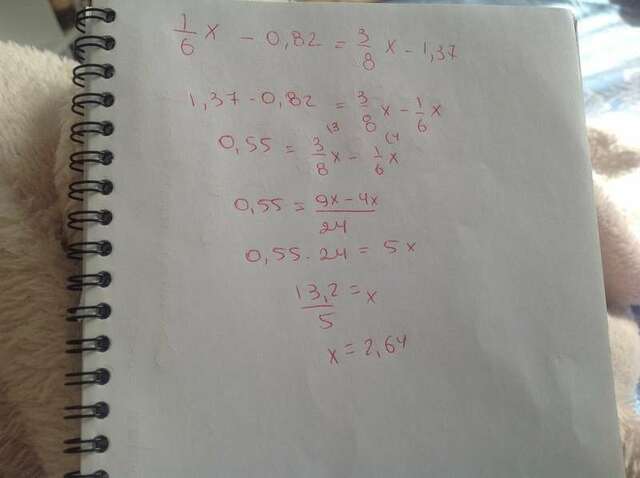 1/6 x - 0,82 = 3/8 x - 1,37
1,37 - 0,82 = 3/8 x - 1/6 x
0,55 = 3/8 (3 x - 1/6 (4 x
0,55 = 9x - 4x / 24
0,55 . 24 = 5x
13,2/5 = x
x = 2,64